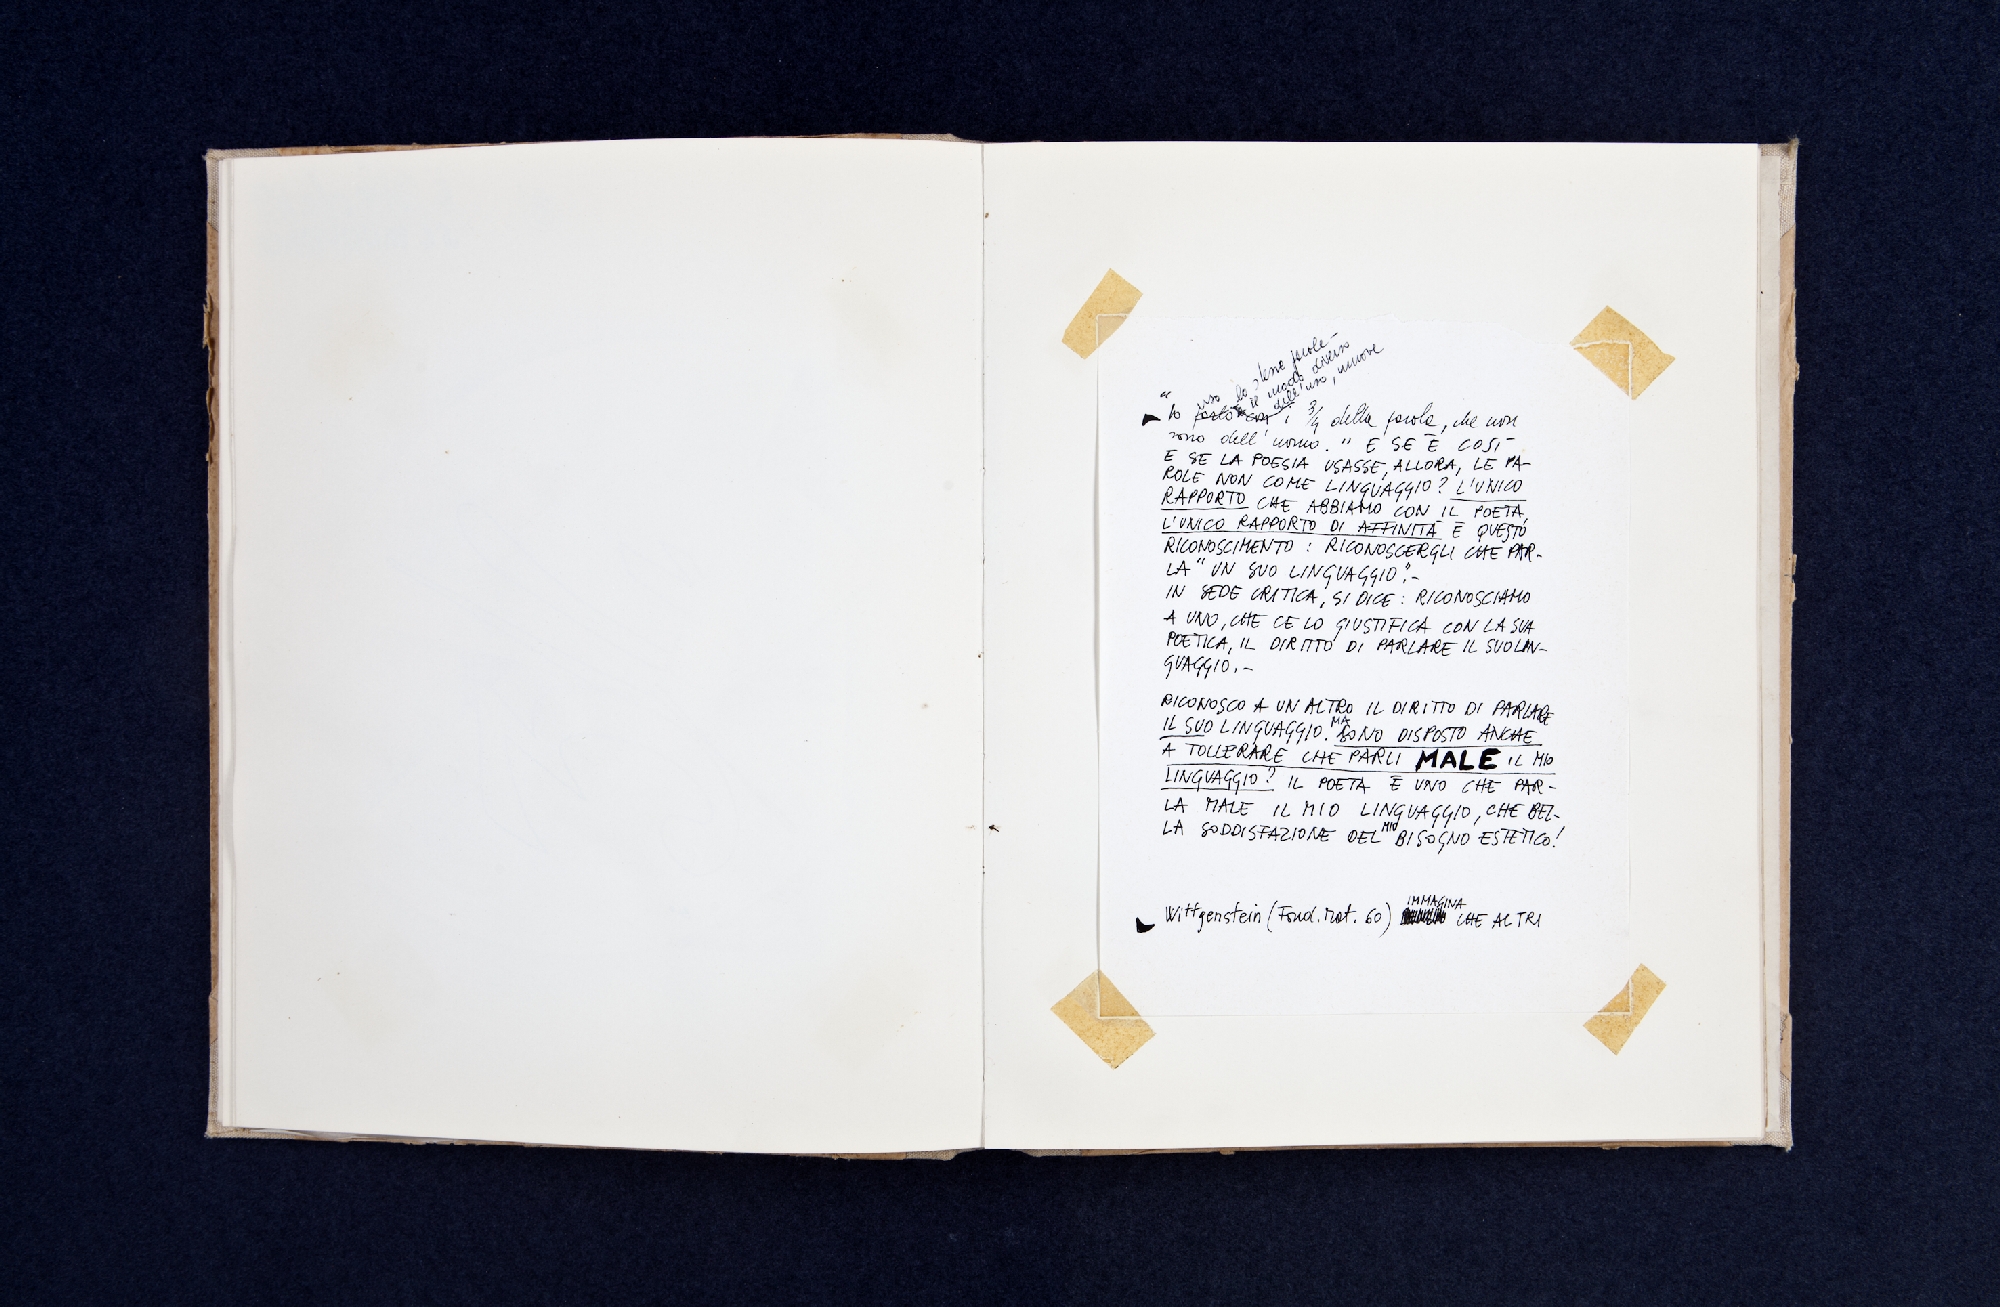 uso le stesse parole
in modo diverso
dell'uso, nuove
"
Io parlo con i 3/4 della parola, che non
sono dell'uomo." E SE È COSÌ
E SE LA POESIA USASSE, ALLORA, LE PA-
ROLE NON COME LINGUAGGIO? L'UNICO
RAPPORTO CHE ABBIAMO CON IL POETA,
L'UNICO RAPPORTO DI AFFINITÀ È QUESTO
RICONOSCIMENTO : RICONOSCERGLI CHE PAR-
LA "UN SUO LINGUAGGIO".-
IN SEDE CRITICA, SI DICE : RICONOSCIAMO
A UNO, CHE CE LO GIUSTIFICA CON LA SUA
POETICA, IL DIRITTO DI PARLARE IL SUO LIN-
GUAGGIO.-
RICONOSCO A UN ALTRO IL DIRITTO DI PARLARE
IL SUO LINGUAGGIO. MA SONO DISPOSTO ANCHE
A TOLLERARE CHE PARLI MALE IL MIO
LINGUAGGIO? IL POETA È UNO CHE PAR-
LA MALE IL MIO LINGUAGGIO, CHE BEL-
LA SODDISFAZIONE DEL MIO BISOGNO ESTETICO!
Wittgenstein (Fond. Mat. 60) IMMAGINA CHE ALTRI